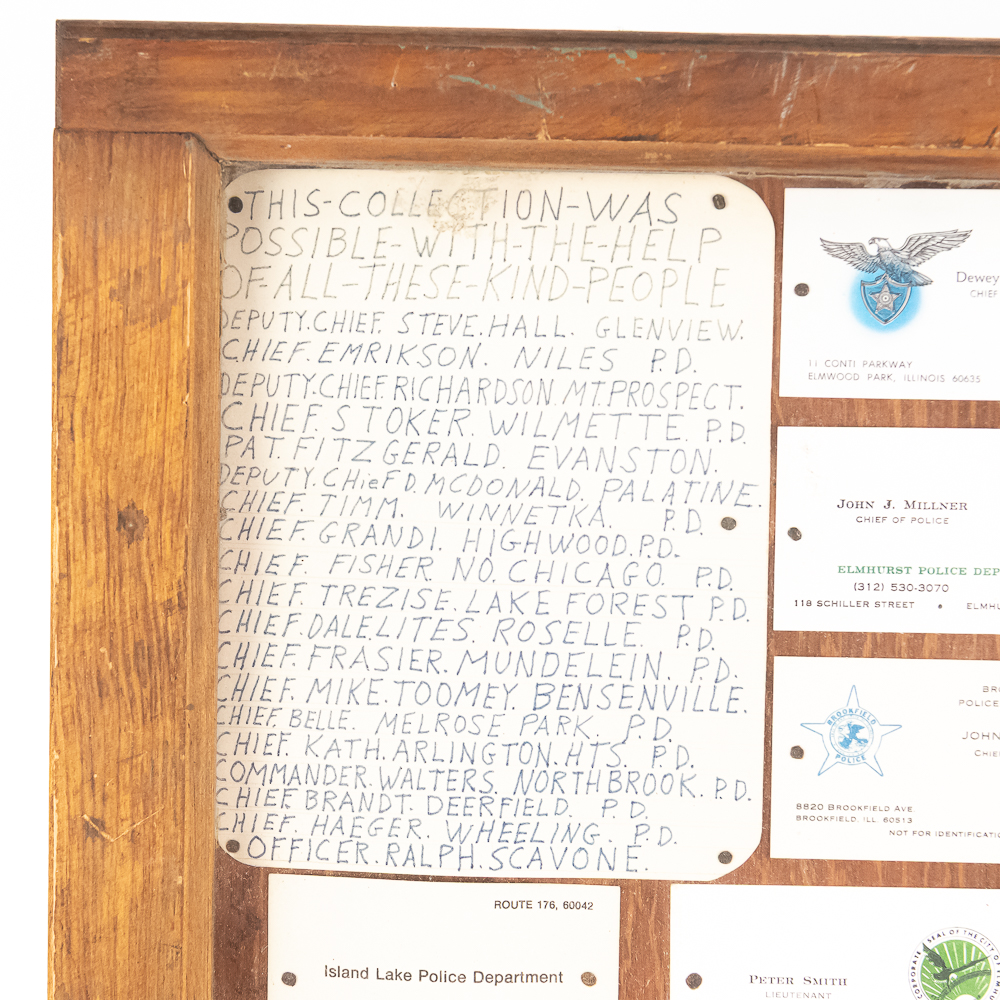 THIS-COLLECTION-WAS
POSSIBLE-WITH-THE-HELP
OF-ALL-THESE-KIND-PEOPLE
DEPUTY.CHIEF. STEVE.HALL. GLENVIEW.
CHIEF.EMRIKSON. NILES P.D.
DEPUTY.CHIEF.RICHARDSON.MT.PROSPECT.
CHIEF.STOKER.WILMETTE.P.D.
PAT.FITZGERALD. EVANSTON.
DEPUTY.CHieF D.MCDONALD. PALATINE.
CHIEF. TIMM. WINNETKA. P.D.
CHIEF.GRANDI. HIGHWOOD.P.D.
CHIEF. FISHER. NO.CHICAGO. P.D.
CHIEF. TREZISE.LAKE FOREST P.D.
CHIEF.DALELITES. ROSELLE. P.D.
CHIEF.FRASIER.MUNDELEIN. P.D.
CHIEF. MIKE.TOOMEY. BENSENVILLE.
CHIEF. BELLE. MELROSE PARK P.D.
CHIEF. KATH.ARLINGTON.HTS. P.D.
COMMANDER.WALTERS. NORTHBROOK.P.D.
CHIEF.BRANDT. DEERFIELD. P.D.
CHIEF. HAEGER. WHEELING. P.D.
OFFICER.RALPH.SCAVONE.
Dewey
CHIEF
11 CONTI PARKWAY
ELMWOOD PARK, ILLINOIS 60635
JOHN J. MILLNER
CHIEF OF POLICE
ELMHURST POLICE DEP
(312) 530-3070
118 SCHILLER STREET • ELMHU
BR
POLICE
BROOKFIELD
POLICE
JOHN
CHIE
8820 BROOKFIELD AVE
BROOKFIELD, ILL. 60513
NOT FOR IDENTIFICATIO
ROUTE 176, 60042
Island Lake Police Department
PETER SMITH
LIEUTENANT
CORPORATE SEAL OF THE CITY OF